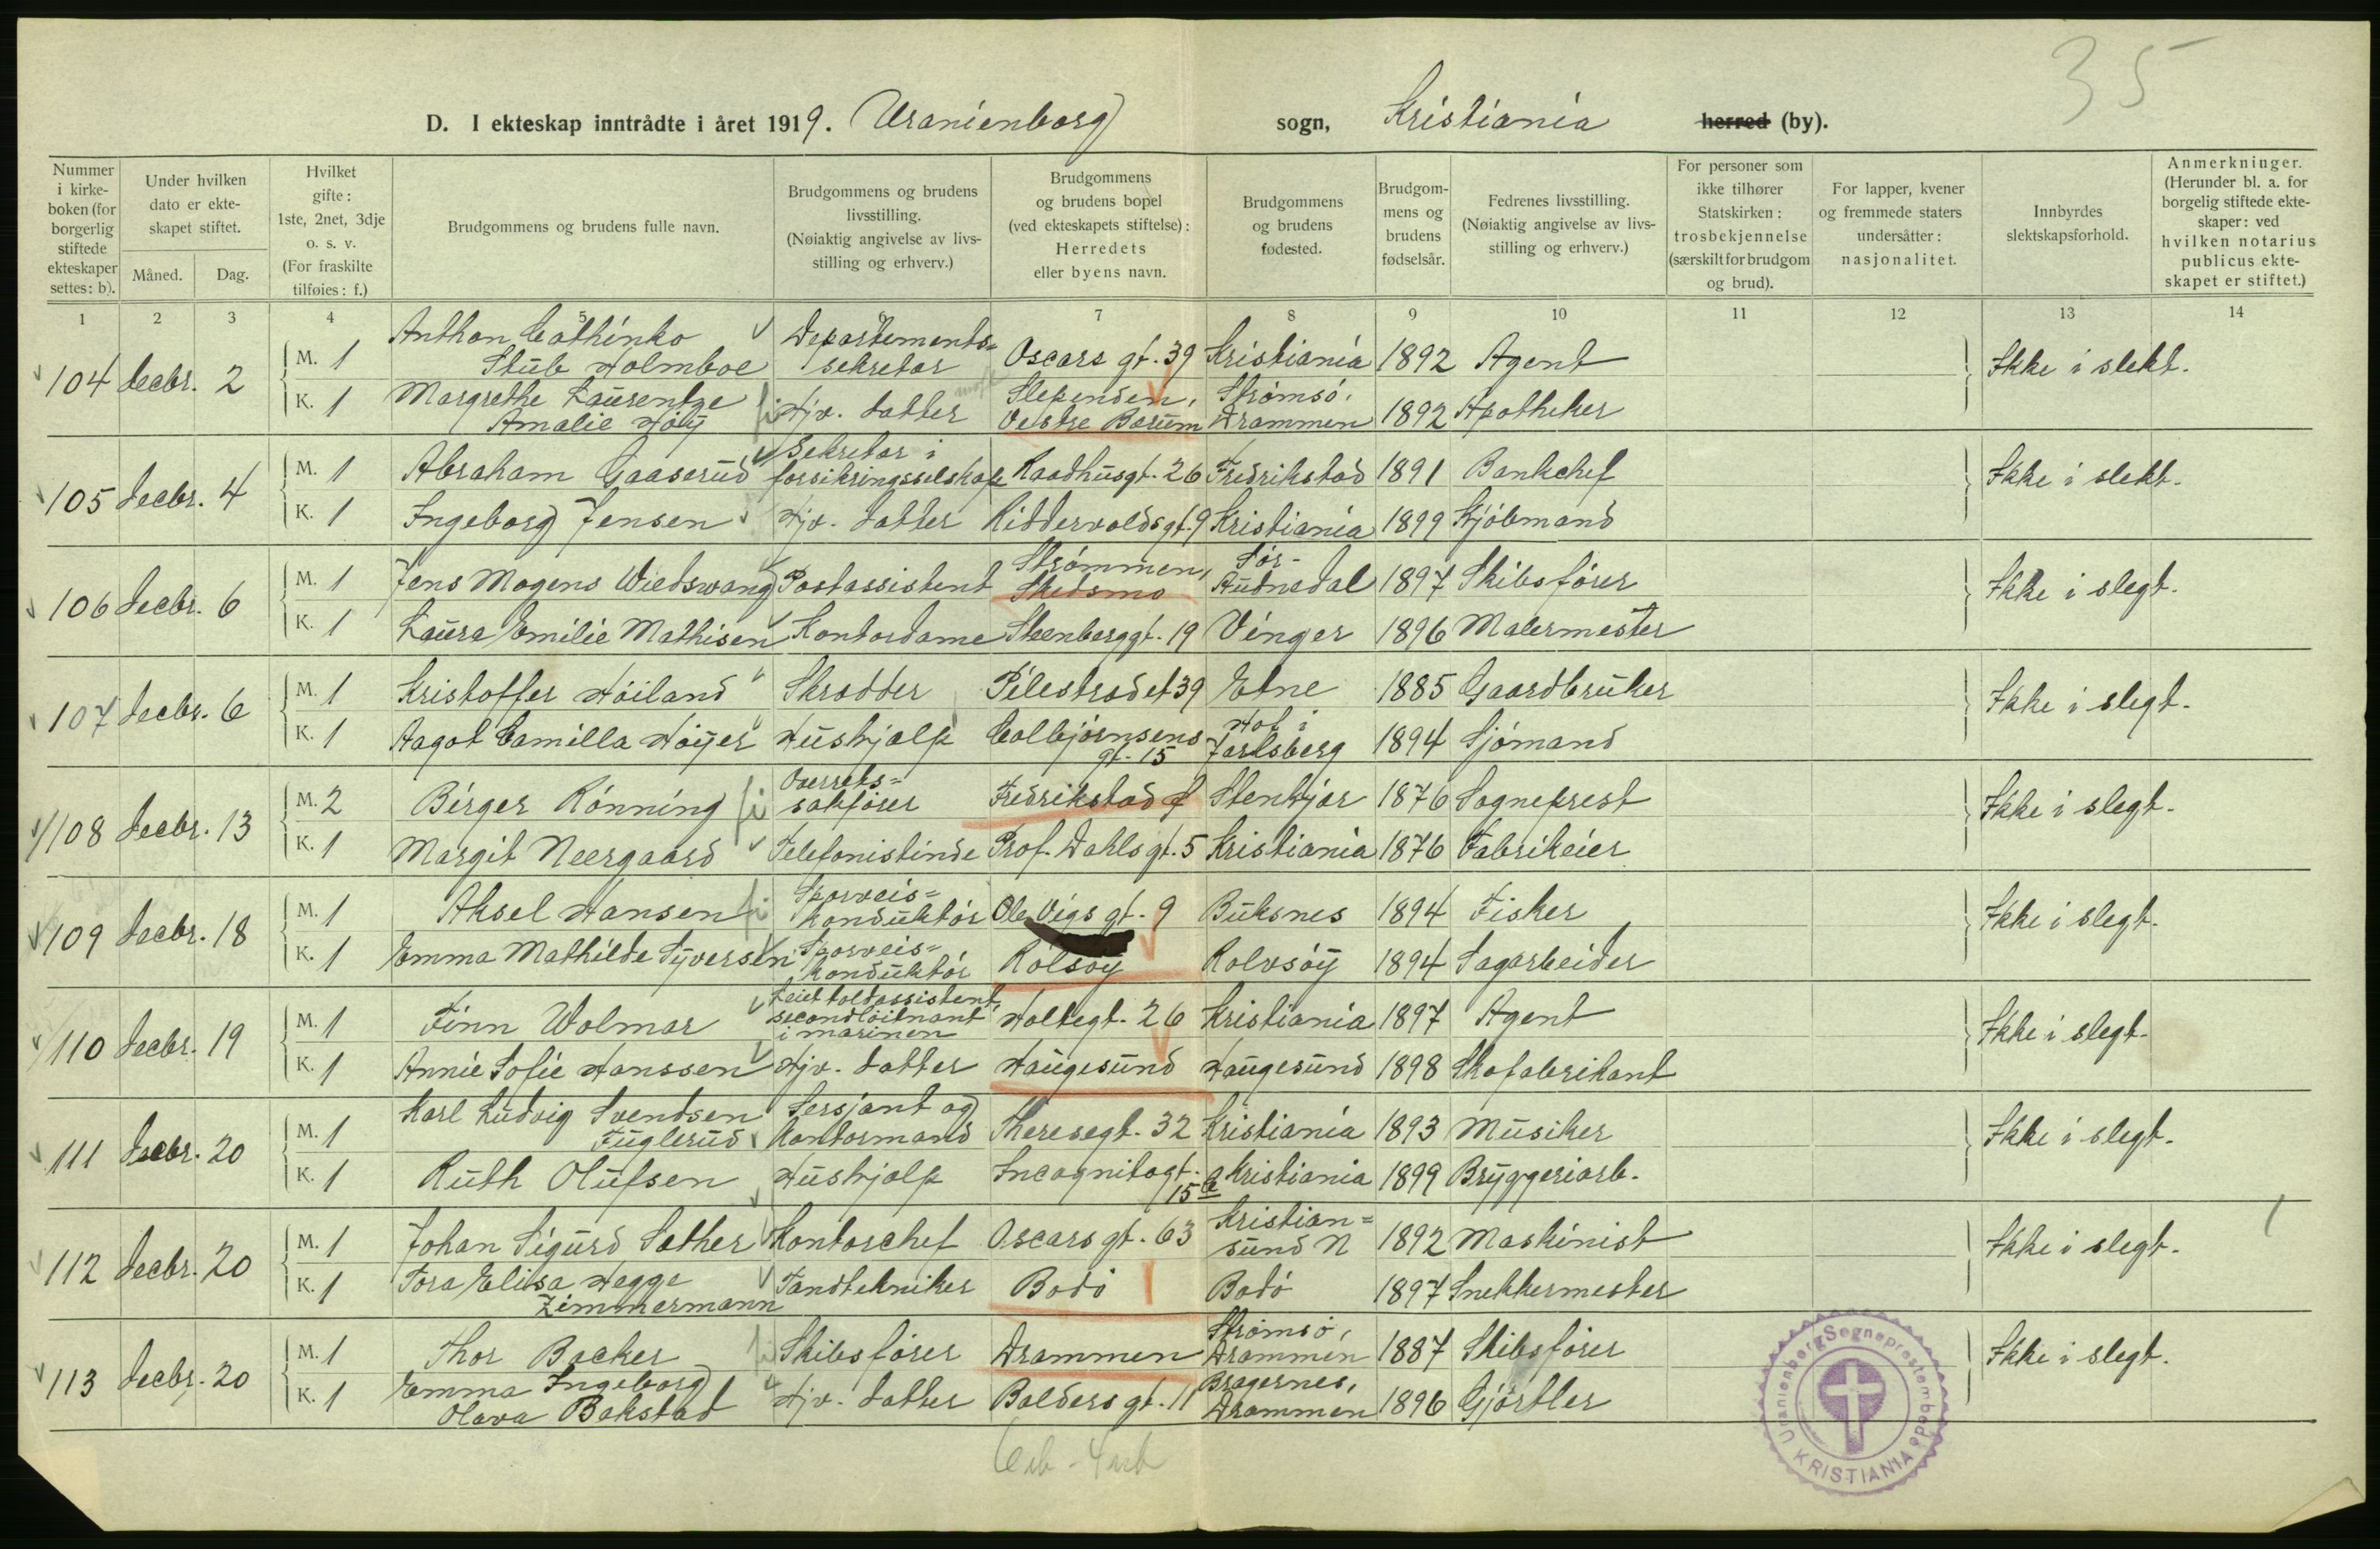 35
D. I ekteskap inntrådte i året 1919. Uranienborg sogn, Kristiania herred (by).
Nummer i kirke-boken (for borgerlig stiftede ekteskaper settes: b).
Under hvilken dato er ekte-skapet stiftet.
Måned. Dag.
Hvilket gifte: 1ste, 2net, 3dje o. s. v. (For fraskilte tilføies: f.)
Brudgommens og brudens fulle navn.
Brudgommens og brudens livsstilling. (Nøiaktig angivelse av livs-stilling og erhverv.)
Brudgommens og brudens bopel (ved ekteskapets stiftelse): Herredets eller byens navn.
Brudgommens og brudens fødested.
Brudgom-mens og brudens fødselsår.
Fedrenes livsstilling. (Nøiaktig angivelse av livs-stilling og erhverv.)
For personer som ikke tilhører Statskirken: trosbekjennelse (særskilt for brudgom og brud).
For lapper, kvener og fremmede staters undersåtter: nasjonalitet.
Innbyrdes slektskapsforhold.
Anmerkninger. (Herunder bl. a. for borgelig stiftede ekte-skaper: ved hvilken notarius publicus ekte-skapet er stiftet.)
1 2 3 4 5 6 7 8 9 10 11 12 13 14
104 Decbr. 2 M. 1 Anthon Cathinko Stub Holmboe Departements=sekretær Oscars gt. 39 Kristiania 1892 Agent Ikke i slekt.
K. 1 Margrethe Laurentze Amalie Höÿ Hjv. datter Slependen, Vestre Bærum Strømsö, Drammen 1892 Apotheker
105 Decbr. 4 M. 1 Abraham Gaaserud Sekretær i forsikringsselskap Raadhusgt. 26 Fredrikstad 1891 Bankchef Ikke i slekt.
K. 1 Ingeborg Jensen Hjv. datter Riddervoldsgt. 9 Kristiania 1899 Kjöbmand
106 Decbr. 6 M. 1 Jens Mogens Wiedswang Postassistent Strömmen, Skedsmo Sör-Audnedal 1897 Skibsförer Ikke i slegt.
K. 1 Laura Emilie Mathisen Kontordame Stenberggt. 19 Vinger 1896 Malermester
107 Decbr. 6 M. 1 Kristoffer Höiland Skrædder Pilestrædet 39 Etne 1885 Gaardbruker Ikke i slegt.
K. 1 Aagot Camilla Höÿer Hushjælp Colbjörnsens gt. 15 Hof i Jarlsberg 1894 Sjömand
108 Decbr. 13 M. 2 Birger Rönning Overrets=sakförer Fredrikstad Stenkjær 1876 Sogneprest Ikke i slegt.
K. 1 Margit Neergaard Telefonistinde Prof. Dahls gt. 5 Kristiania 1876 Fabrikeier
109 Decbr. 18 M. 1 Aksel Hansen Sporveis=konduktör Ole Vigs gt. 9 Buksnes 1894 Fisker Ikke i slegt.
K. 1 Emma Mathilde Syversen Sporveis=konduktör Rolsöy Rolvsöy 1894 Sagarbeider
110 Decbr. 19 M. 1 Finn Wolmar toldassistent, secondlöitnant i marinen Holtegt. 26 Kristiania 1897 Agent Ikke i slegt.
K. 1 Annie Sofie Hanssen Hjv. datter Haugesund Haugesund 1898 Skofabrikant
111 Decbr. 20 M. 1 Karl Ludvig Svendsen Fuglerud Sersjant og Kontormand Theresegt. 32 Kristiania 1893 Musiker Ikke i slegt.
K. 1 Ruth Olufsen Hushjælp Incognitogt. 15 Kristiania 1899 Bryggeriarb.
112 Decbr. 20 M. 1 Johan Sigurd Sæther Kontorchef Oscars gt. 63 Kristian=sund N 1892 Maskinist Ikke i slegt.
K. 1 Tora Elisa Hegge Zimmermann Tandtekniker Bodö Bodö 1897 Snekkermester
113 Decbr. 20 M. 1 Thor Backer Skibsförer Drammen Strömsö, Drammen 1887 Skibsförer Ikke i slegt.
K. 1 Emma Ingeborg Olava Bakstad Hjv. datter Balders gt. 11 Bragernes, Drammen 1896 Gjörtler
Uranienborg Sogneprestembede KRISTIANIA